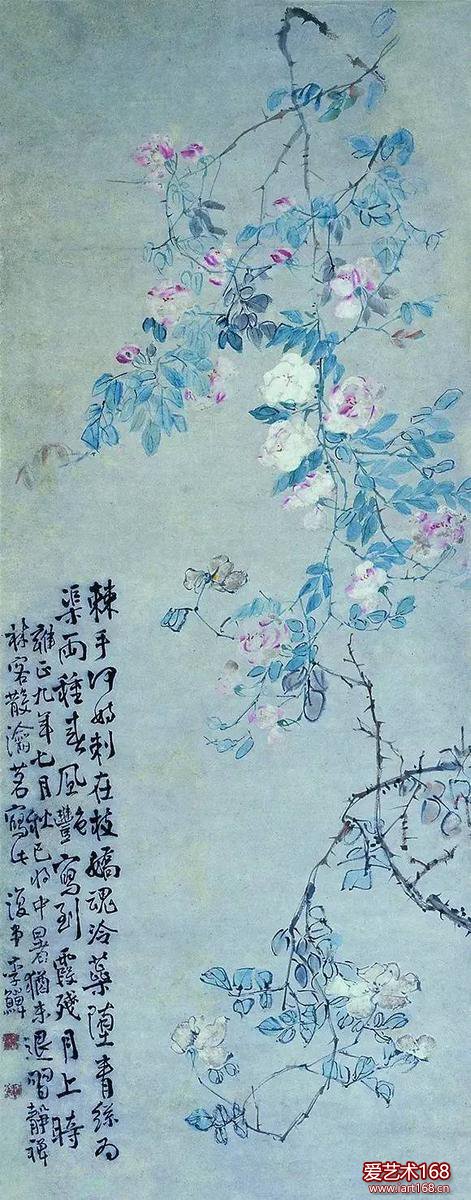 棘手何妨刺在枝嬌魂冷蘂墮青絲為
渠兩種春風豔寫到霞殘月上時
雍正九年七月秋已將中暑猶未退習靜禪
林客散瀹茗寫此 復甫李鱓
爱艺术168
www.iart168.cn